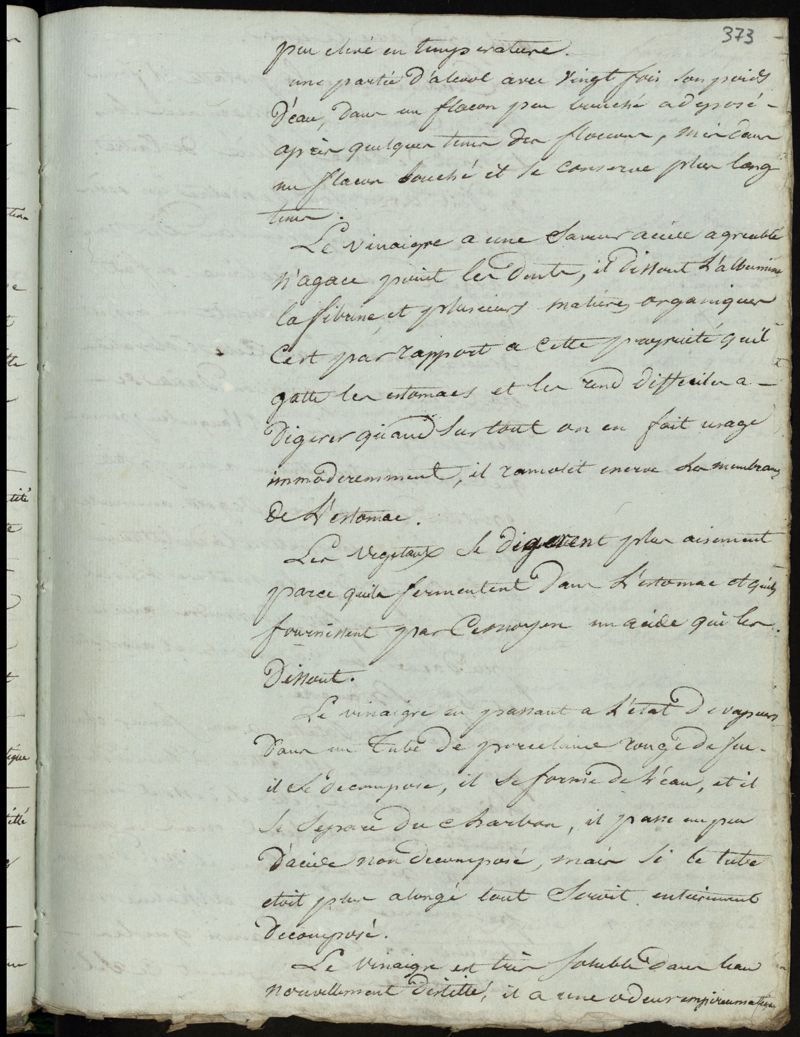 373
peu elevé en temperature.
une partie d'alcool avec vingt fois son poids
D'eau, dans un flacon peu bouché a deposé -
après quelques tems des flocons, mis dans
un flacon bouché il se conserve plus long
tems.
Le vinaigre a une Saveur acide agreable
n'agace point les dents, il dissout L'albumine
la fibrine, et plusieurs matieres organiques
C'est par rapport a cette proprieté qu'il
gatte les estomacs et les rend difficiles a -
Digerer quand Sur tout on en fait usage
immoderemment, il ramolit enerve Les membran
De L'estomac.
Les vegetaux Se digerent plus aisement
parce qu'ils fermentent Dans L'estomac et qu'ils
fournissent par Ce moyen un acide qui les
Dissout.
Le vinaigre en passant a L'etat De vapeurs
Dans un Tube De porcelaine rouge de feu -
il Se decompose, il Se forme de L'eau, et il
Se Separe Du Charbon, il passe un peu
D'acide non decomposé, mais Si le tube
etoit plus alongé tout Seroit entierement
Decomposé.
Le vinaigre est très Soluble dans l'eau
nouvellement Distillé, il a une odeur empireumatique